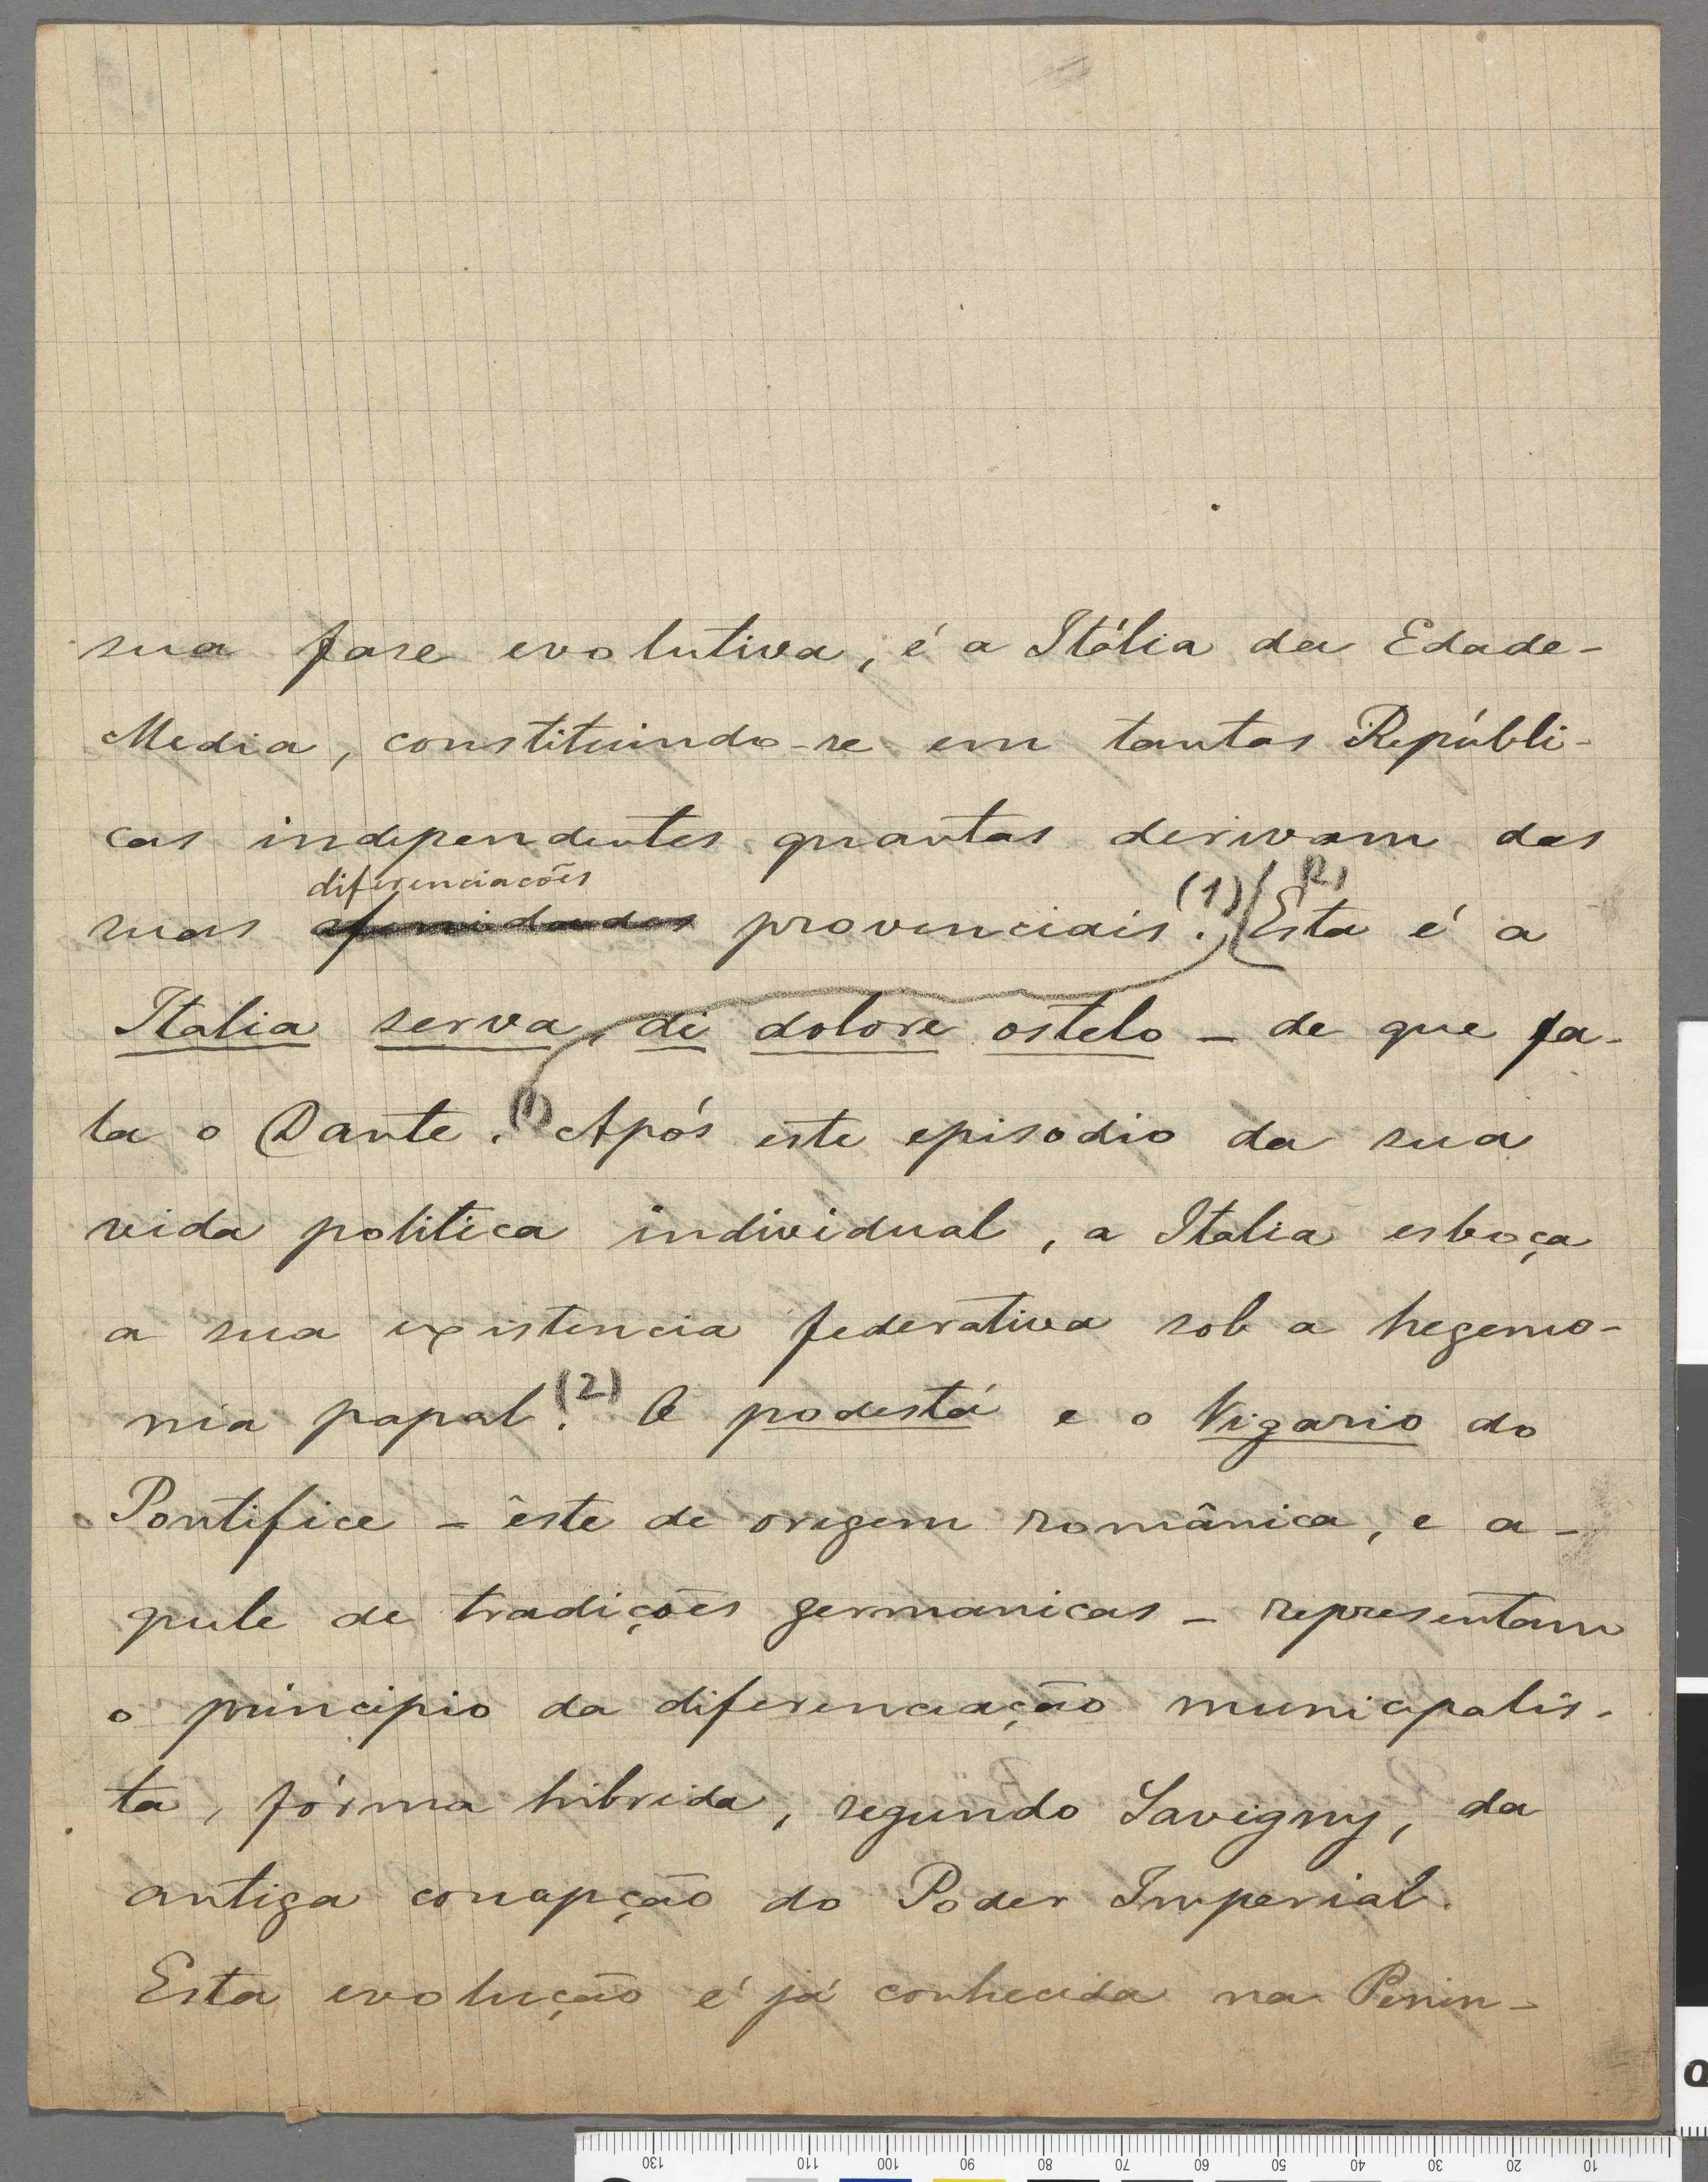 sua fase evolutiva, é a Itália da Edade-
Media, constituindo-se em tantas Repúbli-
cas independentes quantas derivam das
diferenciacões
suas afinidades provinciais. (1) Esta é a
Italia serva, di dolore ostelo – de que fa-
la o Dante. (1) Após este episodio da sua
vida politica individual, a Italia esboça
a sua existencia federativa sob a hegemo-
nia papal. (2) O podestá e o Vigario do
Pontifice – êste de origem românica, e a-
quele de tradições germanicas – representam
o principio da diferenciação municipalis-
ta, fórma hibrida, segundo Savigny, da
antiga concepção do Poder Imperial.
Esta evolução é já conhecida na Penin-
130 110 100 90 80 70 60 50 40 30 20 10